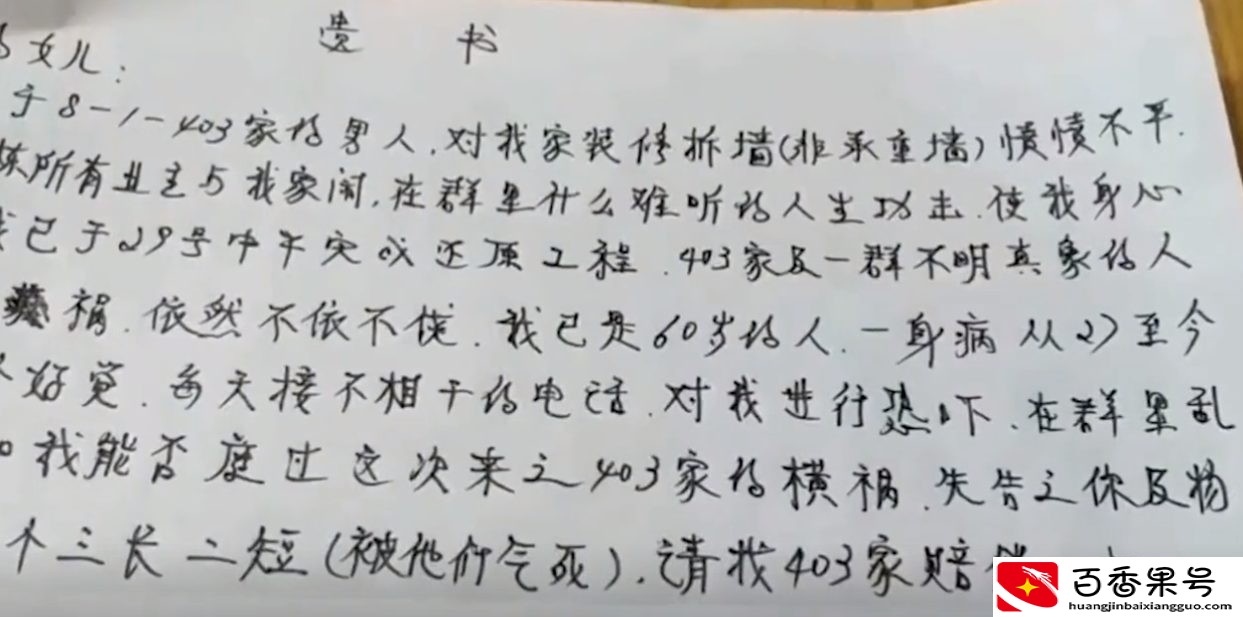 遗书
女儿:
于8-1-403家的男人.对我家装修拆墙(非承重墙)愤愤不平.
栋所有业主与我家闹.在群里什么难听的人生功击.使我身心
我已于29号中午完成还原工程.403家及一群不明真象的人
祸.依然不依不侥.我已是60岁的人.一身病从27至今
好觉.每天接不相干的电话.对我进行恐吓.在群里乱
我能否度过这次来之403家的横祸.先告之你及物
个三长二短(被他们气死).请找403家赔
百香果号
huangjinbaixiangguo.com